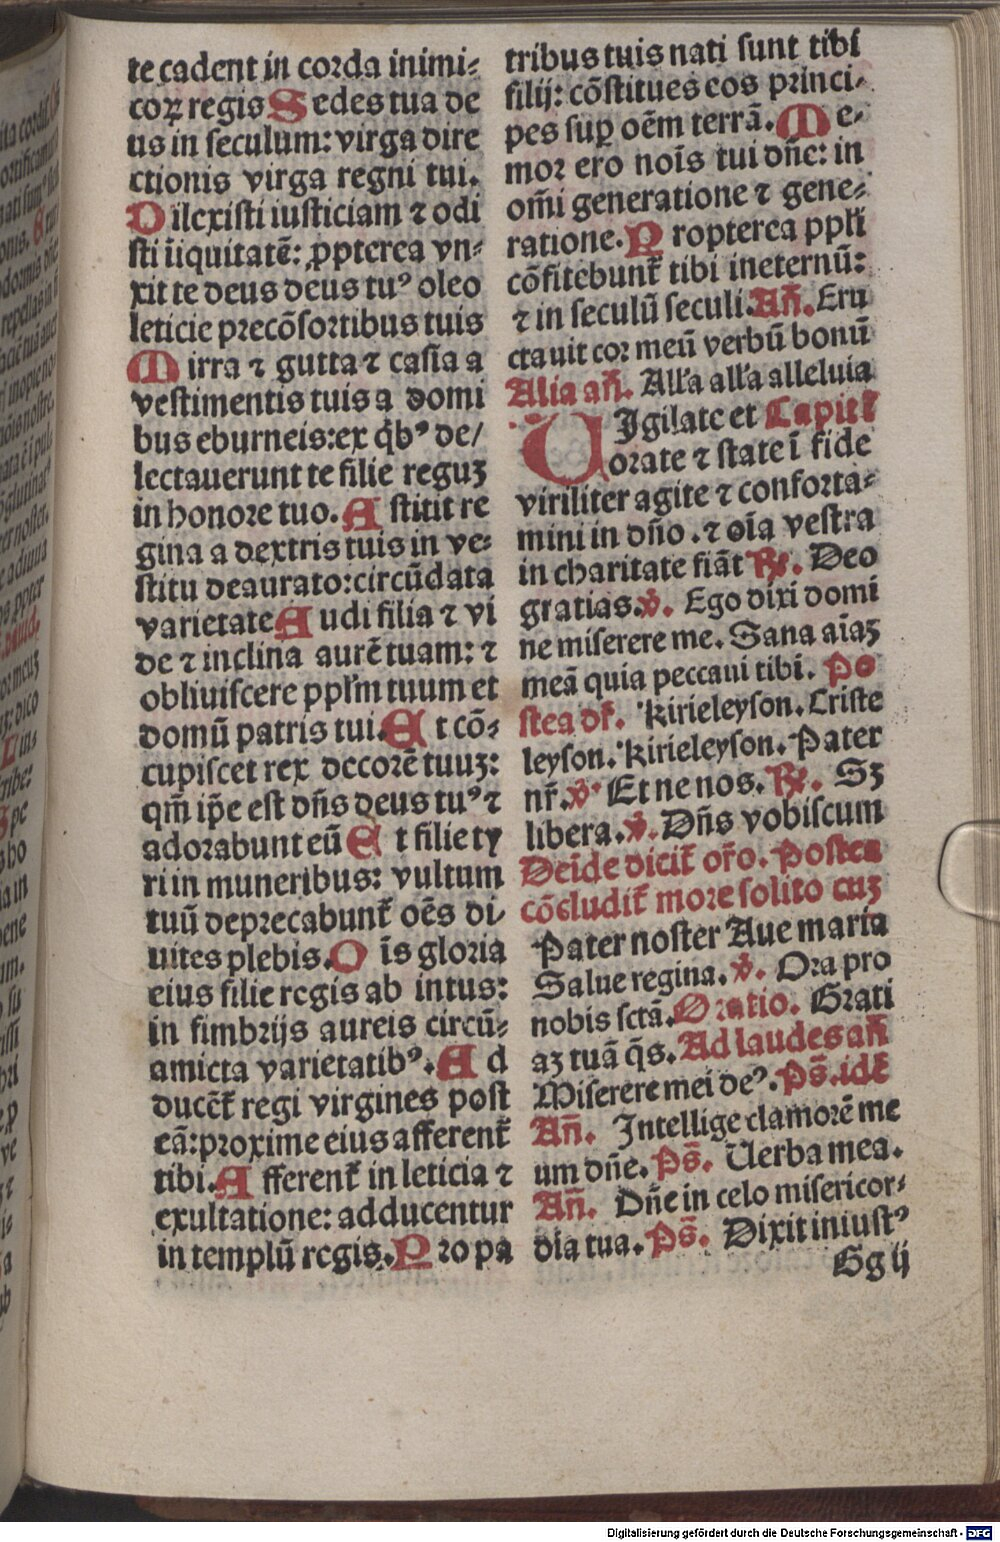 te cadent in corda inimi-
coꝝ regis Sedes tua de
us in seculum: virga dire
ctionis virga regni tui.
Dilexisti iusticiam ⁊ odi
sti iiquitatē: ꝓpterea vn-
xit te deus deus tuꝰ oleo
leticie precōsortibus tuis
Mirra ⁊ gutta ⁊ casia a
vestimentis tuis a domi
bus eburneis: ex q̇bꝰ de/
lectauerunt te filie reguꝫ
in honore tuo. Astitit re
gina a dextris tuis in ve-
stitu deaurato: circūdata
varietate Audi filia ⁊ vi
de ⁊ inclina aurē tuam: ⁊
obliuiscere pplm̄ tuum et
domū patris tui. Et cō-
cupiscet rex decorē tuuꝫ:
qm̄ ip̄e est dn̄s deus tuꝰ ⁊
adorabunt eū Et filie ty
ri in muneribus: vultum
tuū deprecabunt̄ oēs di-
uites plebis. Oīs gloria
eius filie regis ab intus:
in fimbrijs aureis circū-
amicta varietatibꝰ. Ad
ducēt̄ regi virgines post
eā: proxime eius afferent̄
tibi. Afferent̄ in leticia ⁊
exultatione: adducentur
in templū regis. Pro pa
tribus tuis nati sunt tibi
filij: cōstitues eos princi-
pes suꝑ oēm terrā. Me-
mor ero nois̄ tui dn̄e: in
om̄i generatione ⁊ gene-
ratione. Propterea pplī
cōfitebunt̄ tibi ineternū:
⁊ in seculū seculi. An̄. Eru
ctauit cor meū verbū bonū
Alia an̄. Alla alla alleluia
UIgilate et Capitl̄
orate ⁊ state ī fide
viriliter agite ⁊ conforta-
mini in dn̄o. ⁊ oīa vestra
in charitate fiāt ℟. Deo
gratias. ℣. Ego dixi domi
ne miserere me. Sana aīaꝫ
meā quia peccaui tibi. Po
stea dr̄. Kirieleyson. Criste
leyson. Kirieleyson. Pater
nr̄. ℣. Et ne nos. ℟. Sꝫ
libera. ℣. Dn̄s vobiscum
Deīde dicit̄ or̄o. Postea
cōcludit̄ more solito cuꝫ
Pater noster Aue maria
Salue regina. ℣. Ora pro
nobis sctā. Oratio. Grati
aꝫ tuā q̄s. Ad laudes an̄
Miserere mei deꝰ. Ps̄. idē
An̄. Intellige clamorē me
um dn̄e. Ps̄. Uerba mea.
An̄. Dn̄e in celo misericor-
dia tua. Ps̄. Dixit iniustꝰ
Gg ij
Digitalisierung gefördert durch die Deutsche Forschungsgemeinschaft - DFG